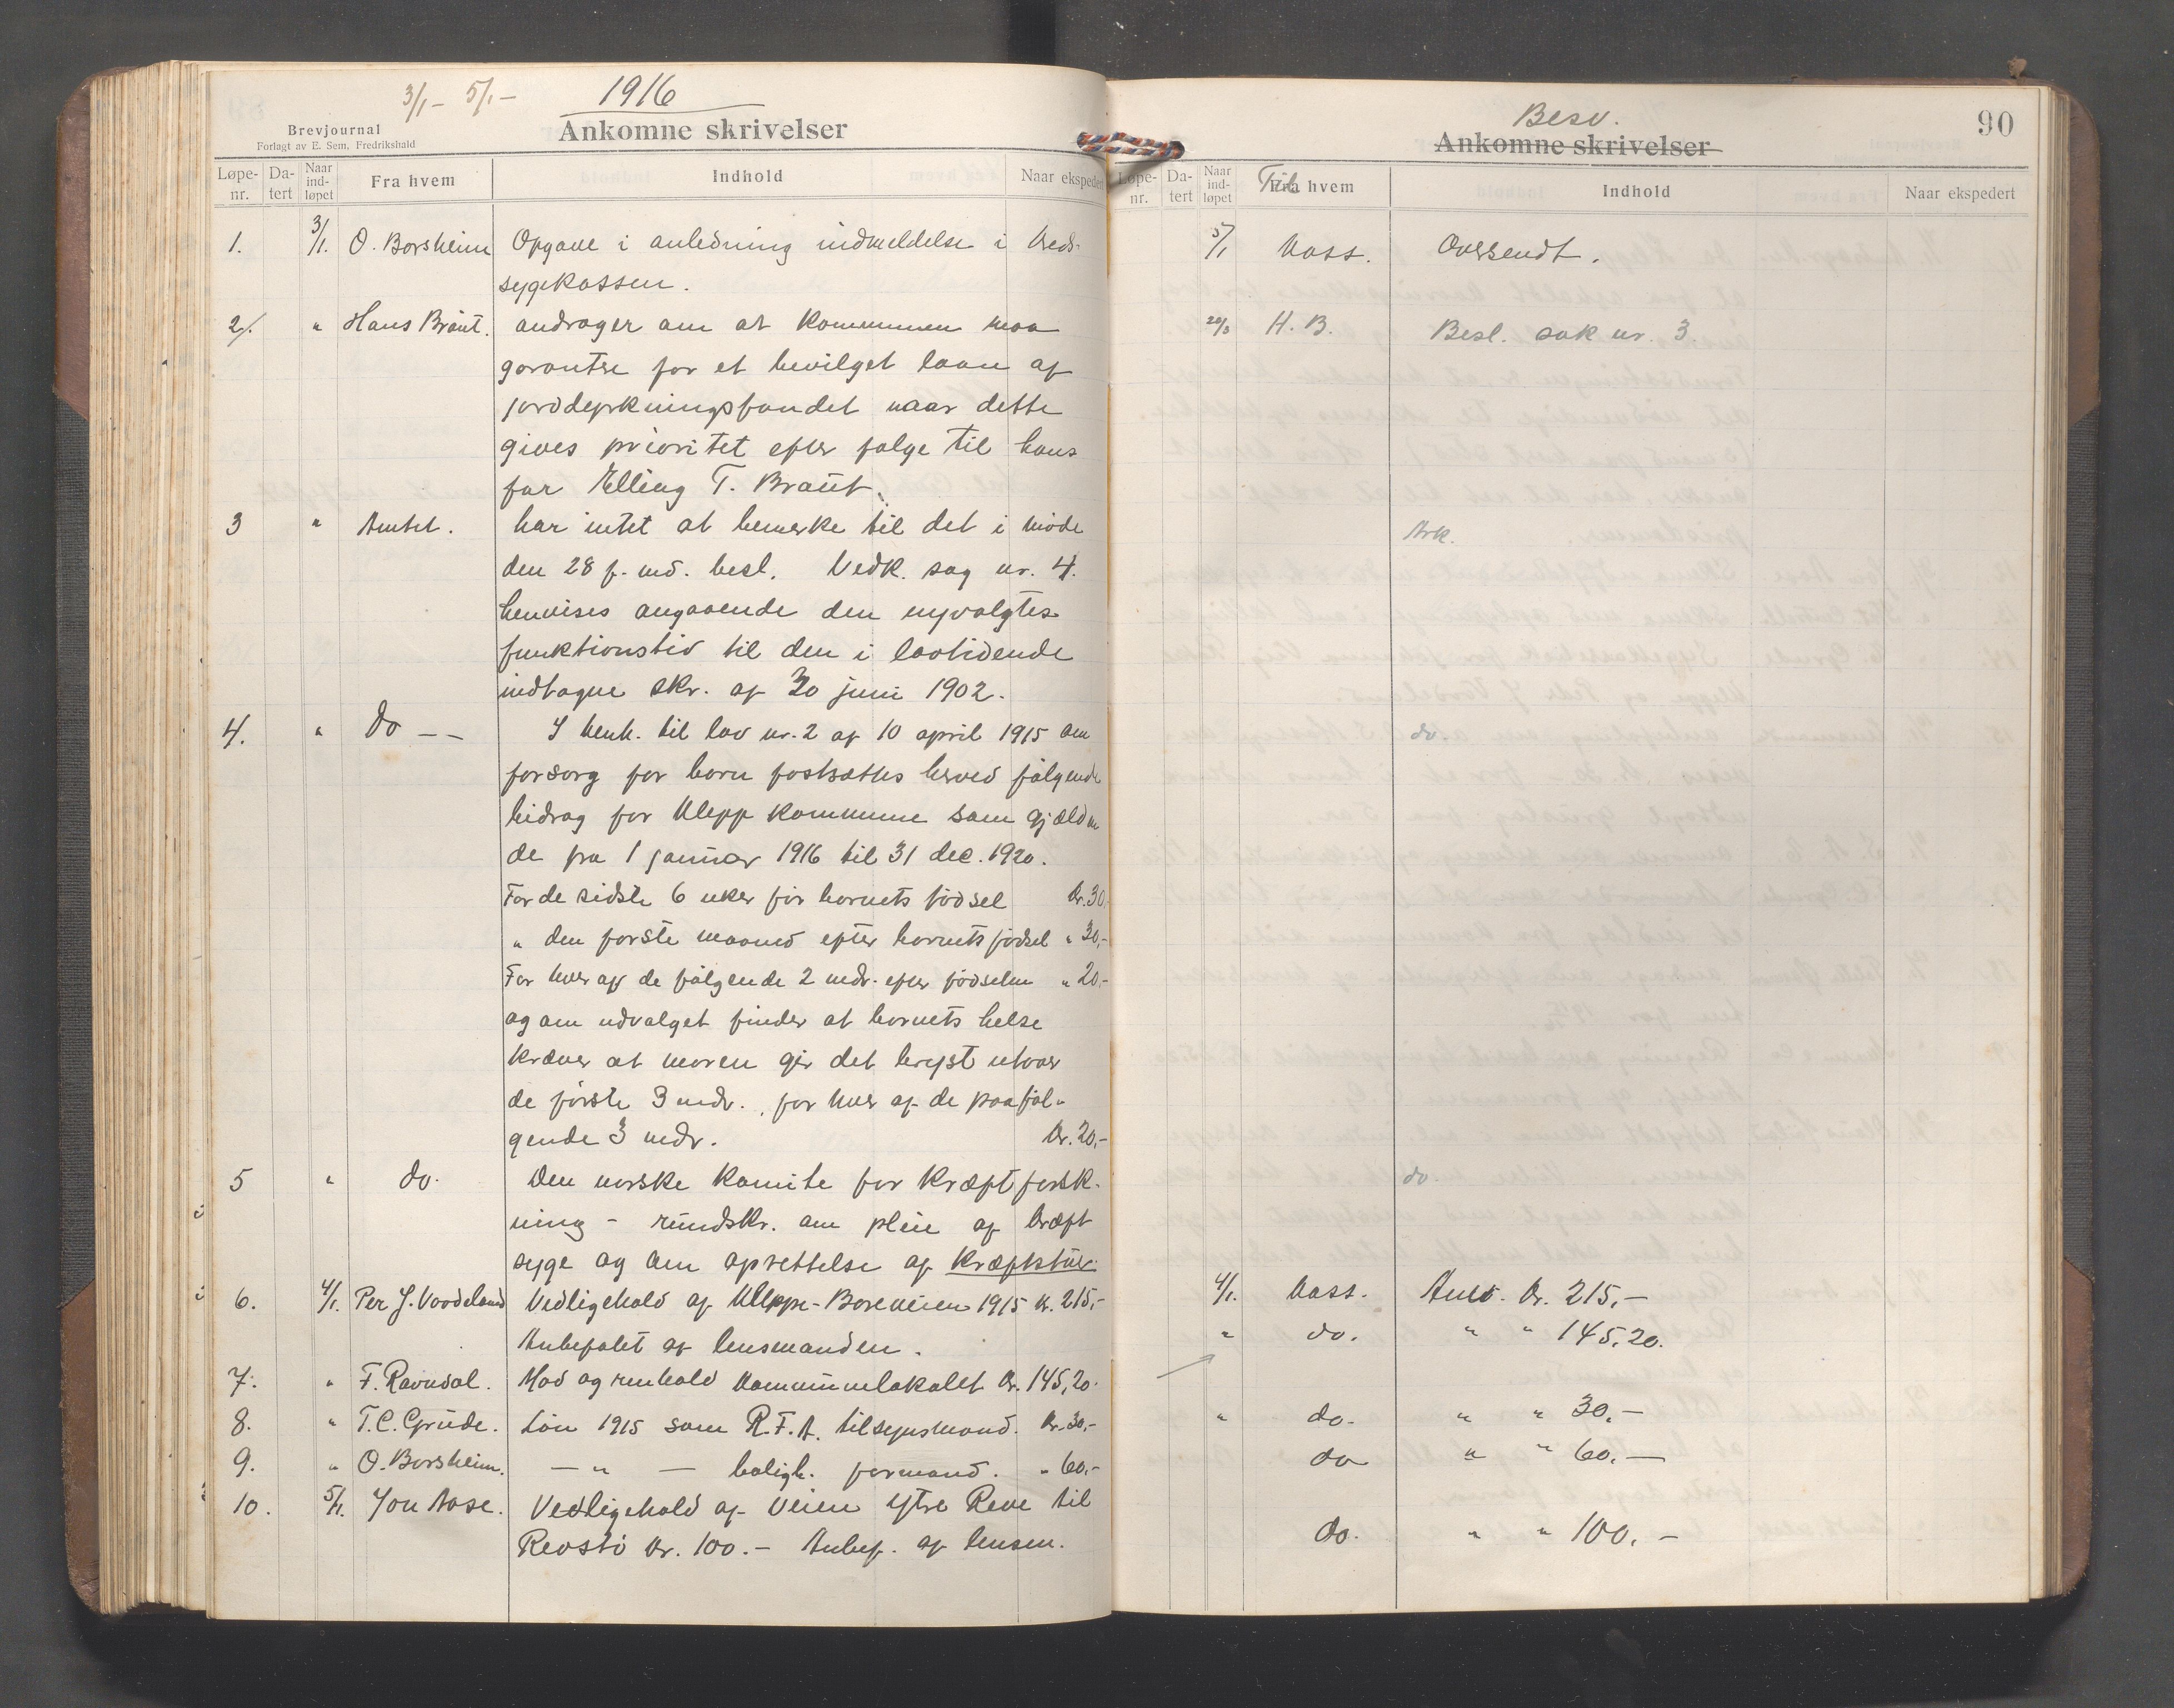 3/1 - 5/1 -
1916
Brevjournal
Forlagt av E. Sem, Fredrikshald
Ankomne skrivelser
Løpe-nr. Da-tert Naar ind-løpet Fra hvem Indhold Naar ekspedert
1. 3/1. O. Borsheim Opgave i anledning indmeldelse i Kreds-
sygekassen.
2/. " Hans Braut. andrager om at kommunen maa
garantere for et bevilget laan af
jorddyrkningsfondet naar dette
gives prioritet efter følge til hans
far Elling T. Braut.
3 " Amtet. har intet at bemerke til det i møde
den 28 f. md. besl. Vedk. sag nr. 4.
henvises angaaende den nyvalgtes
funktionstid til den i lovtidende
indtagne skr. af 30 juni 1902.
4. " do -- I henh. til lov nr. 2 af 10 april 1915 om
forsorg for børn fastsættes herved følgende
bidrag for Klepp kommune som gjælden
de fra 1 januar 1916 til 31 dec. 1920.
For de sidste 6 uker før barnets fødsel Kr. 30.
" den første maaned efter barnets fødsel " 30,-
For hver af de følgende 2 mdr. efter fødselen " 20,-
og om udvalget finder at barnets helse
kræver at moren gir det bryst utover
de første 3 mdr., for hver af de paaføl-
gende 3 mdr. Kr. 20,-
5 " do. Den norske komite for kræftforsk-
ning - rundskr. om pleie af kræft
syge og om oprettelse af kræftstuer.
6. 4/1. Per J. Voodeland Vedligehold af Kleppe-Boreveien 1915 kr. 215,-
Anbefalet af lensmanden.
7. " F. Ravndal. Mad og renhold kommunelokalet Kr. 145,20.
8. " T.C. Grude. Løn 1915 som R.F.A. tilsynsmand. Kr. 30,-
9. " O. Borsheim. — " — boligk. formand. " 60,-
10. 5/1. Jon Aase. Vedligehold af veien ytre Reve til
Revstø kr. 100.- Anbef. af lensm.
90
Besv.
Ankomne skrivelser
Løpe-nr. Da-tert Naar ind-løpet Fra hvem Til Indhold Naar ekspedert
5/1 Kass. Oversendt.
20/3 H. B. Besl. sak nr. 3.
Ark.
do.
do.
4/1. Kass. Anv. Kr. 215,-
" do. " " 145,20.
" do. " " 30,-
do " " 60,-
do. " " 100,-